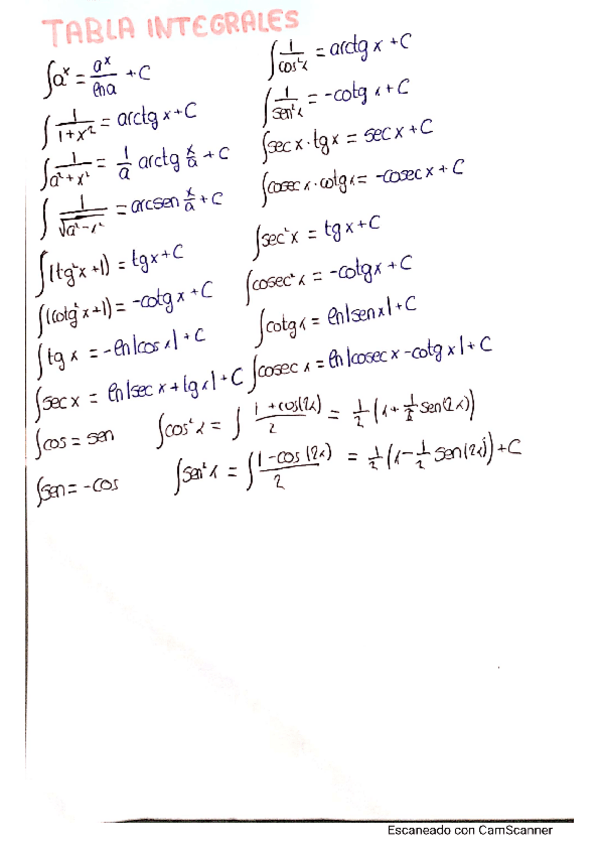 TABLA INTEGRALES
∫aˣ = aˣ/lna + C
∫1/cos²x = arctg x + C
∫1/(1+x²) = arctg x + C
∫1/sen²x = -cotg x + C
∫1/(a²+x²) = 1/a arctg x/a + C
∫sec x · tg x = sec x + C
∫1/√(a²-x²) = arcsen x/a + C
∫cosec x · cotg x = -cosec x + C
∫(tg²x+1) = tg x + C
∫sec²x = tg x + C
∫(cotg²x+1) = -cotg x + C
∫cosec²x = -cotg x + C
∫tg x = -ln|cos x| + C
∫cotg x = ln|sen x| + C
∫sec x = ln|sec x + tg x| + C
∫cosec x = ln|cosec x - cotg x| + C
∫cos = sen
∫cos²x = ∫(1+cos(2x))/2 = 1/2 (x + 1/2 sen(2x))
∫sen = -cos
∫sen²x = ∫(1-cos(2x))/2 = 1/2 (x - 1/2 sen(2x)) + C
Escaneado con CamScanner